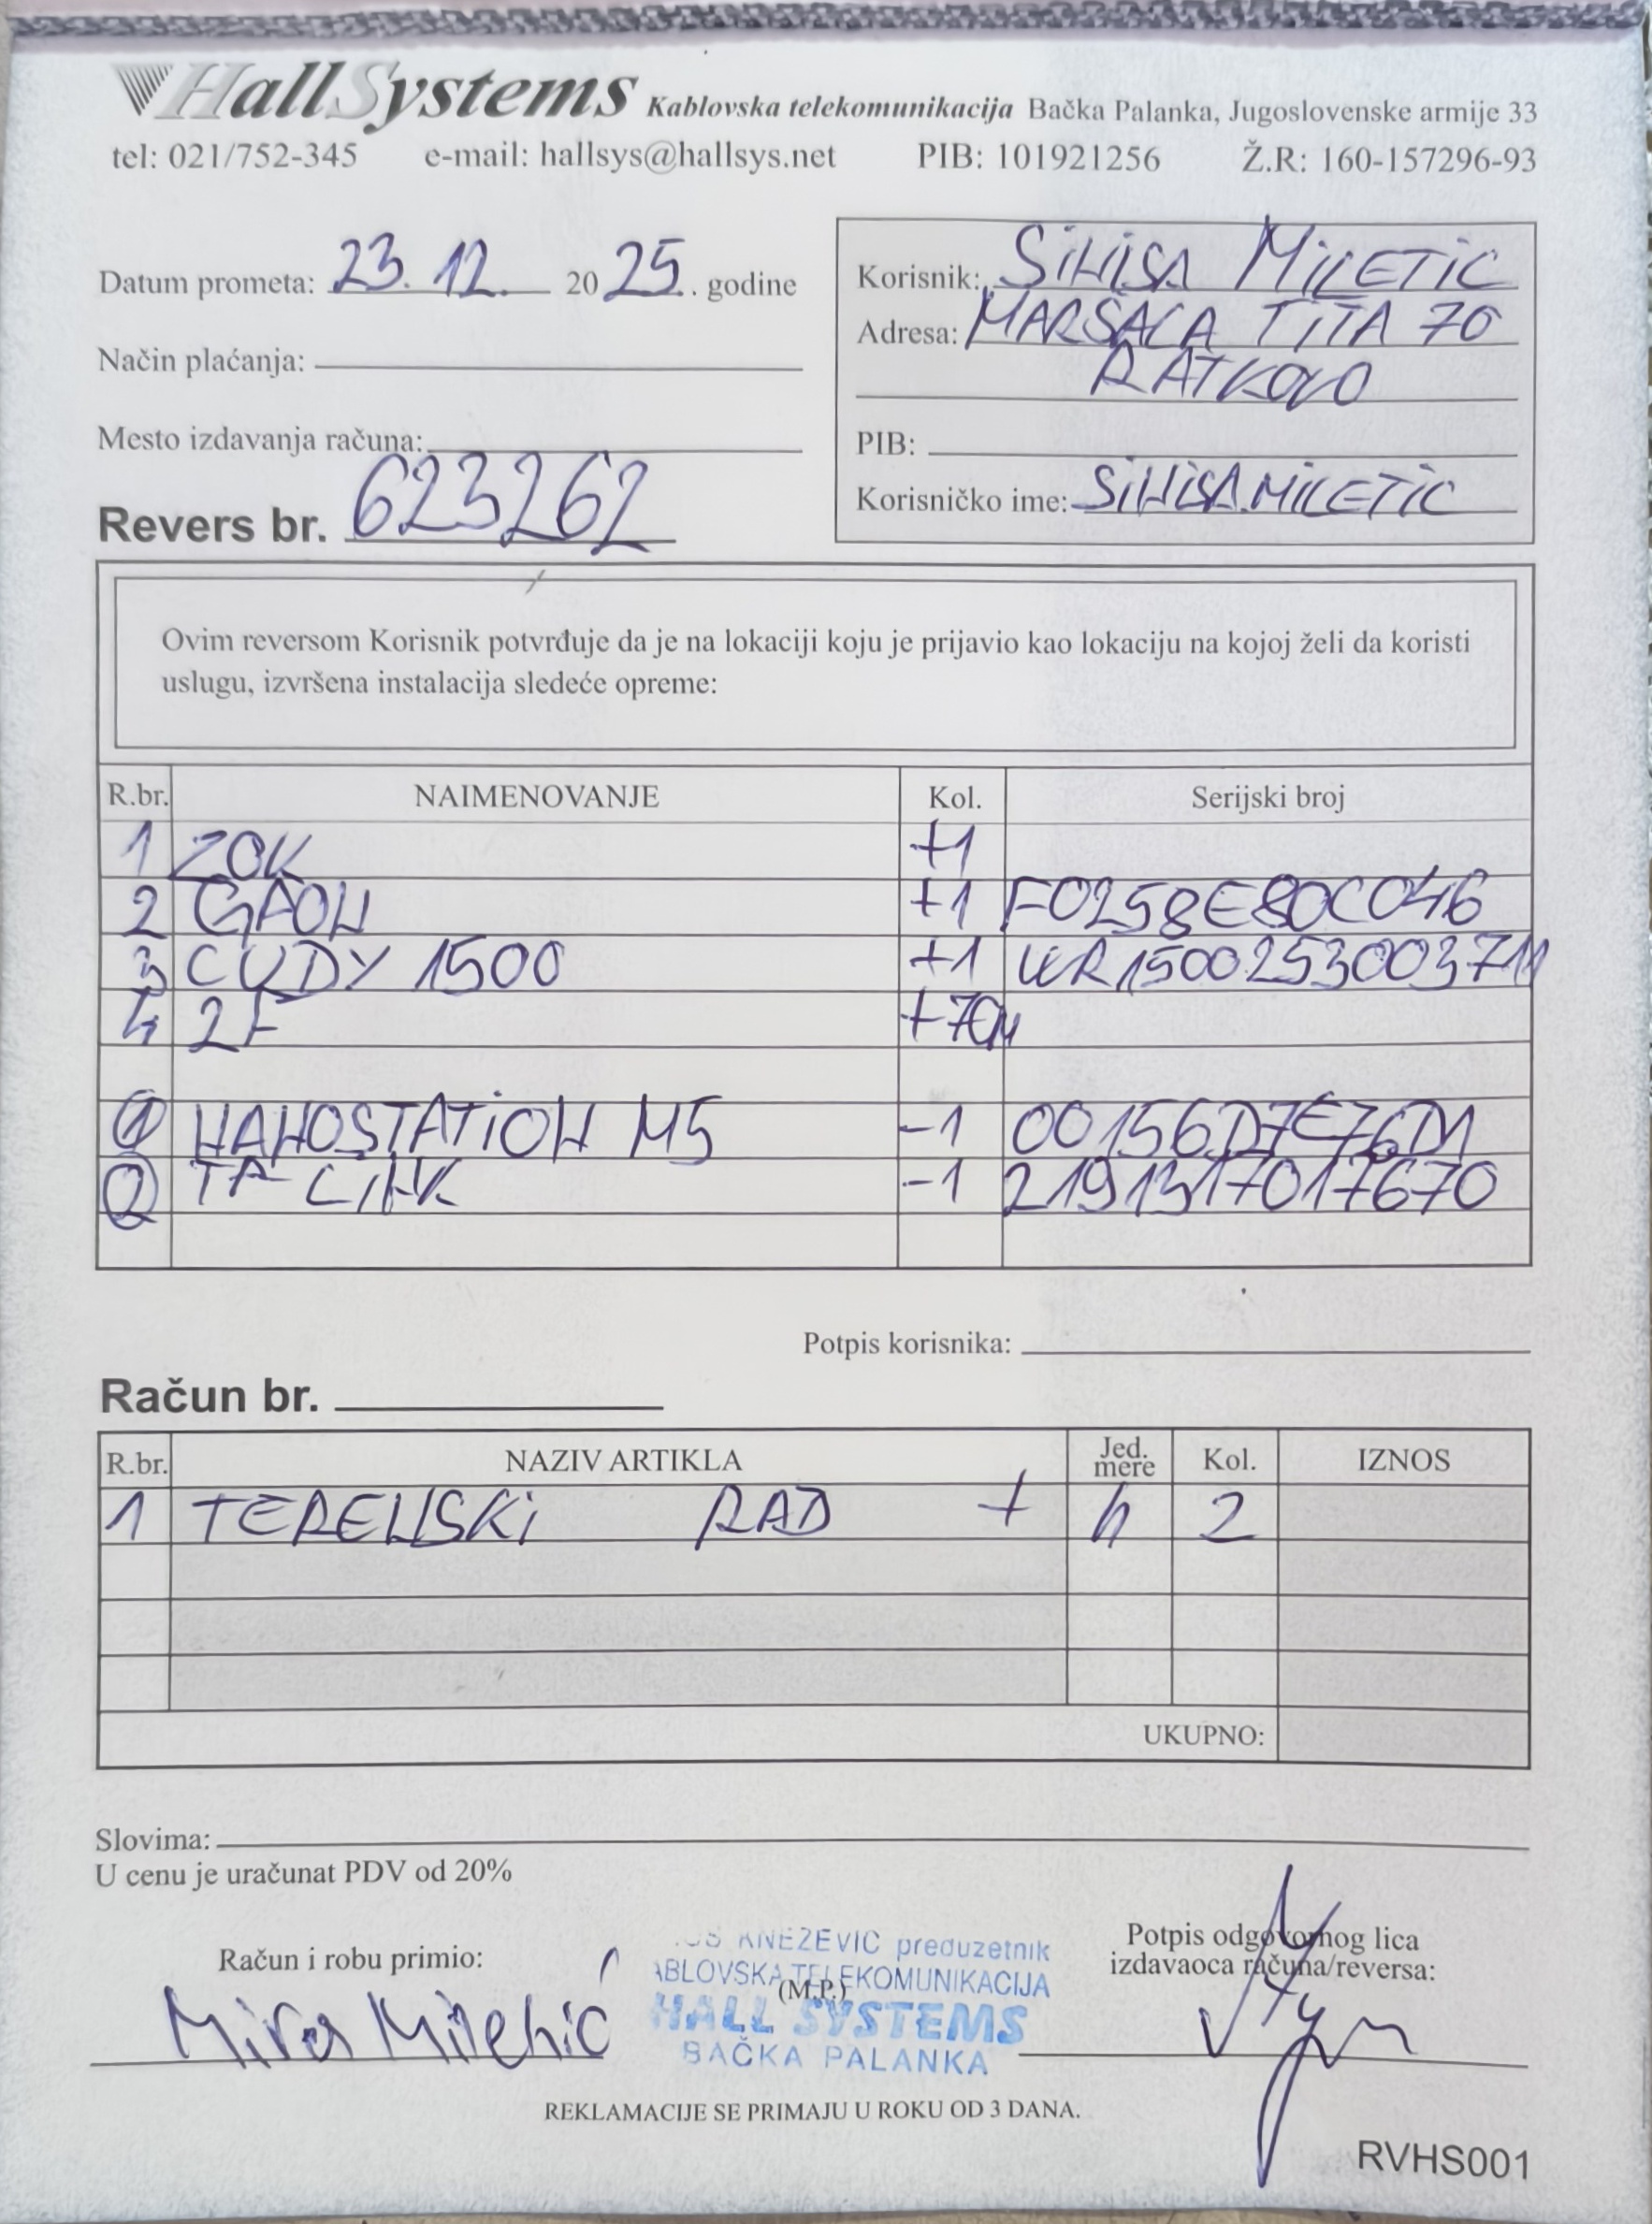 HallSystems Kablovska telekomunikacija Bačka Palanka, Jugoslovenske armije 33
tel: 021/752-345 e-mail: hallsys@hallsys.net PIB: 101921256 Ž.R: 160-157296-93
Datum prometa: 23. 12. 20 25. . godine
Korisnik: SINISA MILETIC
Adresa: MARŠALA TITA 70
RATKOVO
Način plaćanja:
Mesto izdavanja računa:
PIB:
Korisničko ime: SINISA.MILETIC
Revers br. 623262
Ovim reversom Korisnik potvrđuje da je na lokaciji koju je prijavio kao lokaciju na kojoj želi da koristi
uslugu, izvršena instalacija sledeće opreme:
R.br. NAIMENOVANJE Kol. Serijski broj
1 ZOK +1
2 GPON +1 F0258E80C046
3 CUDY 1500 +1 WR1500253003711
4 2F +70m
1 NANOSTATION M5 -1 00156D7E76D1
2 TP-LINK -1 2191317017670
Potpis korisnika:
Račun br.
R.br. NAZIV ARTIKLA Jed. mere Kol. IZNOS
1 TERENSKI RAD + h 2
UKUPNO:
Slovima:
U cenu je uračunat PDV od 20%
Račun i robu primio:
Potpis odgovornog lica
izdavaoca računa/reversa:
KNEŽEVIĆ preduzetnik
ABLOVSKA TELEKOMUNIKACIJA
(M.P.)
HALL SYSTEMS
BAČKA PALANKA
Mira Miletić
REKLAMACIJE SE PRIMAJU U ROKU OD 3 DANA.
RVHS001